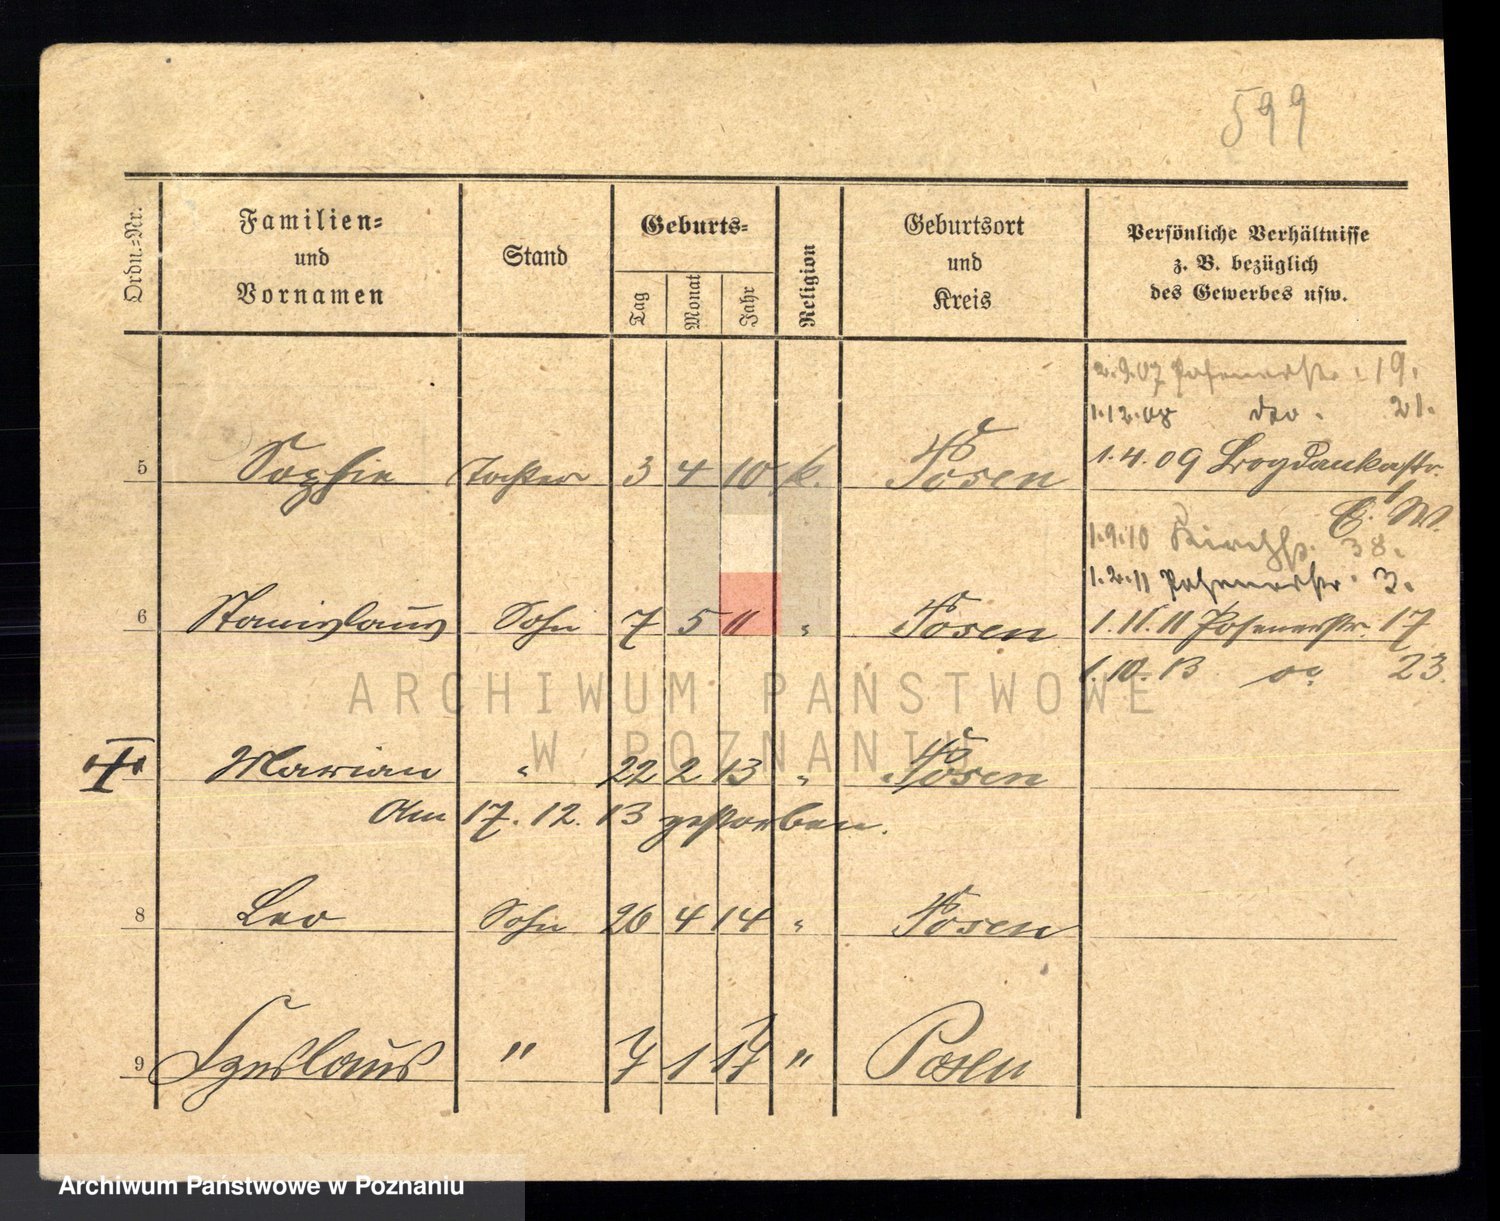 599
Ordn.-Nr. Familien- und Vornamen Stand Geburts- Tag Monat Jahr Religion Geburtsort und Kreis Persönliche Verhältnisse z. B. bezüglich des Gewerbes usw.
2.9.07 Posenerstr. 19.
1.12.08 do. 21.
5 Sophie Tochter 3 4 10 k. Posen 1.4.09 Bogdankastr.
E. W.
1.9.10 Kirchstr. 38.
1.2.11 Posenerstr. 3.
6 Stanislaus Sohn 7 5 11 " Posen 1.11.11 Posenerstr. 17
1.10.13 do 23.
Marian " 22 2 13 " Posen
Am 17.12.13 gestorben.
8 Leo Sohn 26 4 14 " Posen
9 " 7 1 17 " Posen
ARCHIWUM PAŃSTWOWE
W POZNANIU
Archiwum Państwowe w Poznaniu